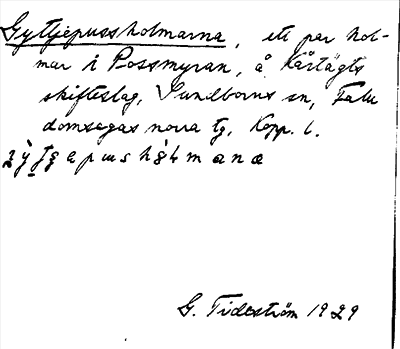 Gyttjepussholmarna, ett par hol-
mar i Rossmyran, å Kårtägts
skifteslag, Sundborns sn, Falu
domsagas norra tg, Kopp. l.
G. Tideström 1929